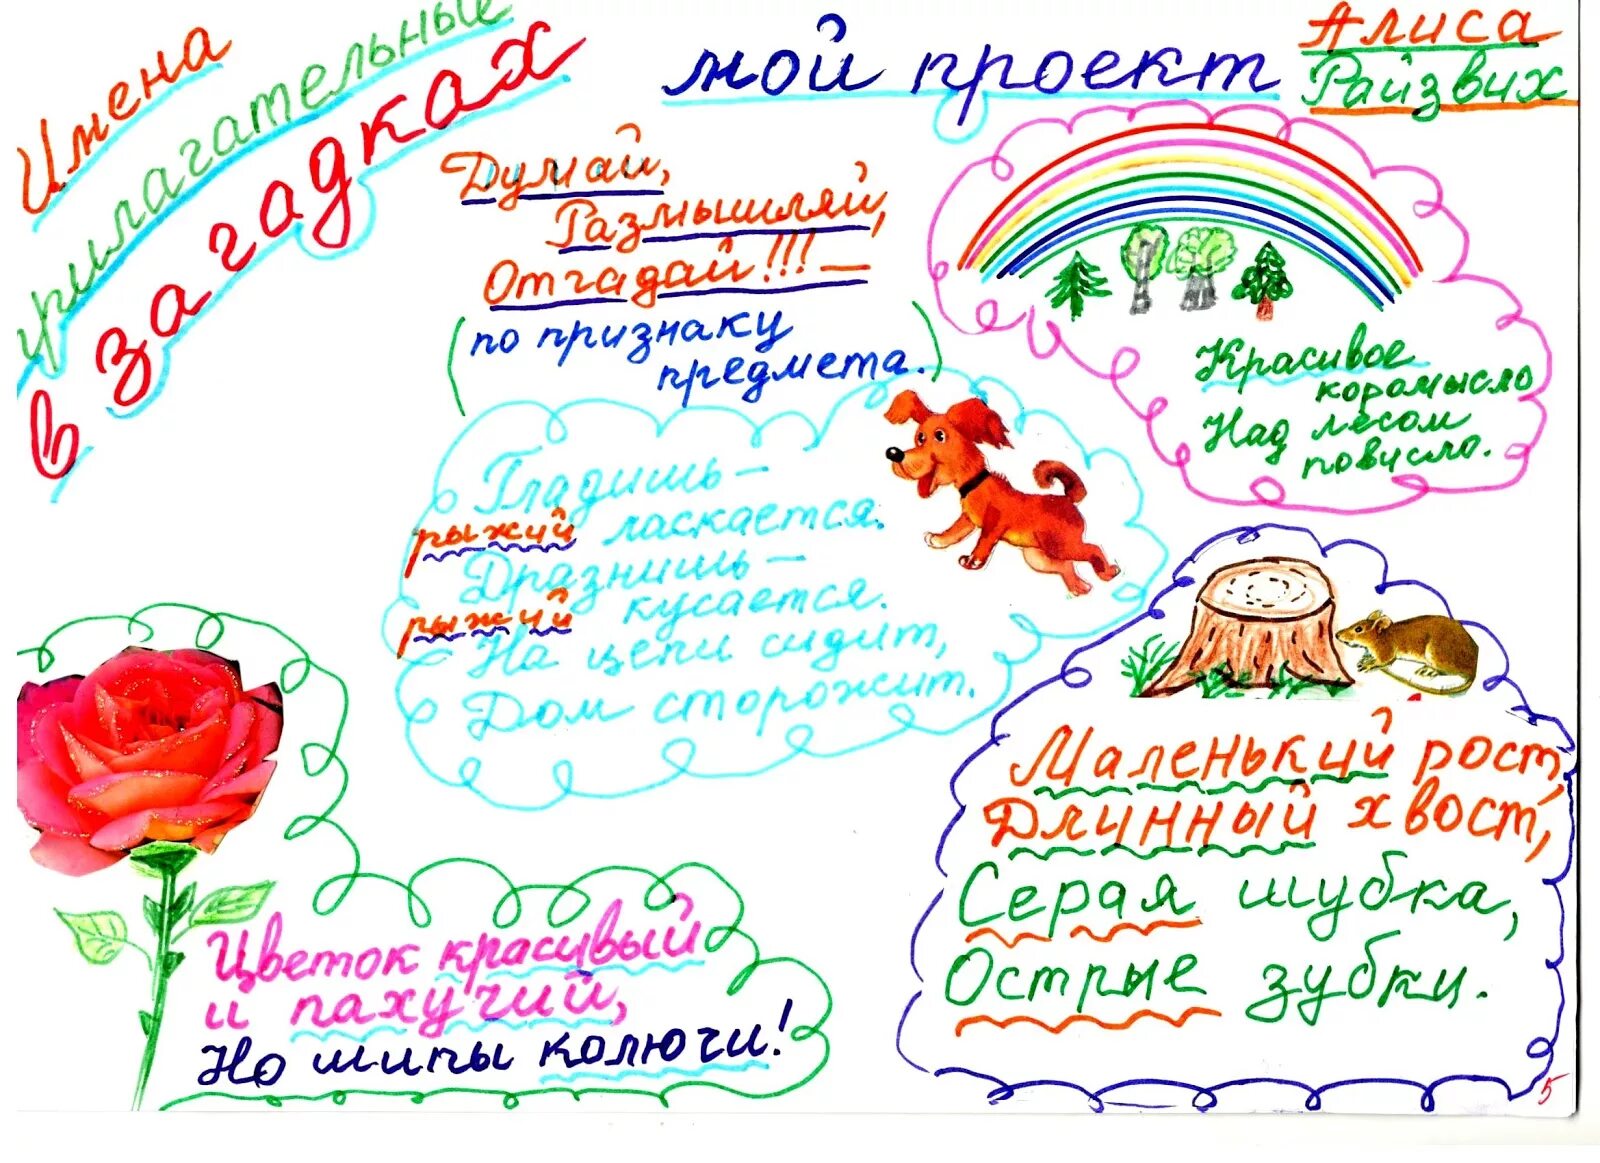 Имена
прилагательные
в загадках
мой проект
Алиса
Райзвих
Думай,
Размышляй,
Отгадай!!!
(по признаку
предмета.)
Красивое
коромысло
Над лесом
повисло.
Гладишь –
рыжий ласкается.
Дразнишь –
рыжий кусается.
На цепи сидит,
Дом сторожит.
Маленький рост,
Длинный хвост,
Серая шубка,
Острые зубки.
Цветок красивый
и пахучий,
Но шипы колючи!
5